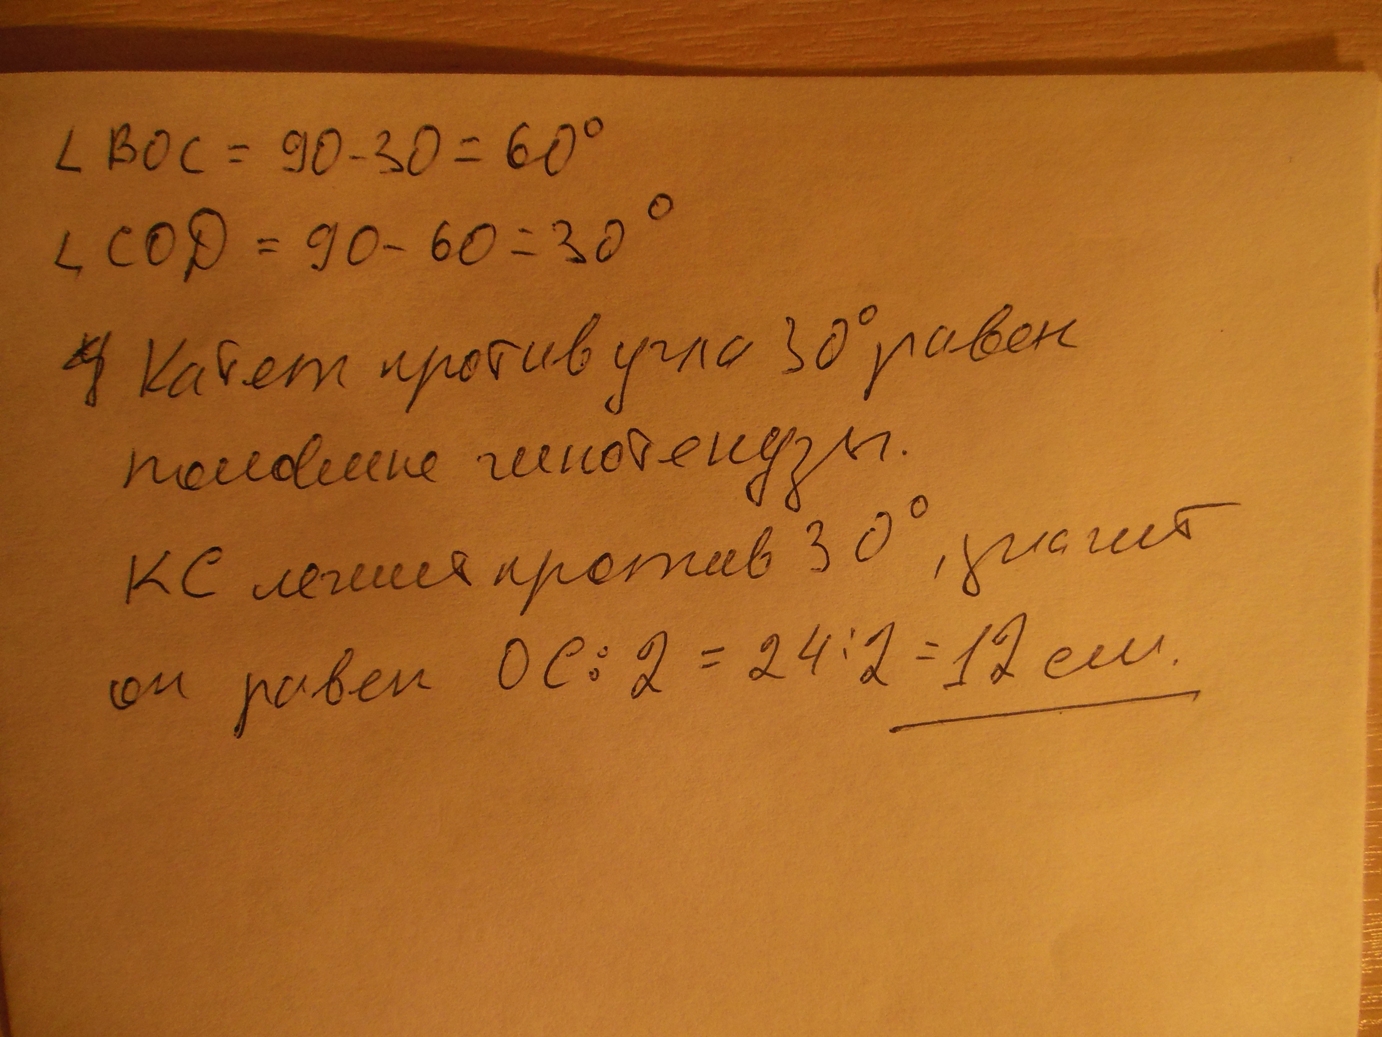 ∠BOC = 90-30 = 60°
∠COD = 90-60=30°
Катет против угла 30° равен
половине гипотенузы.
КС лежит против 30°, значит
он равен ОС:2 = 24:2=12 см.